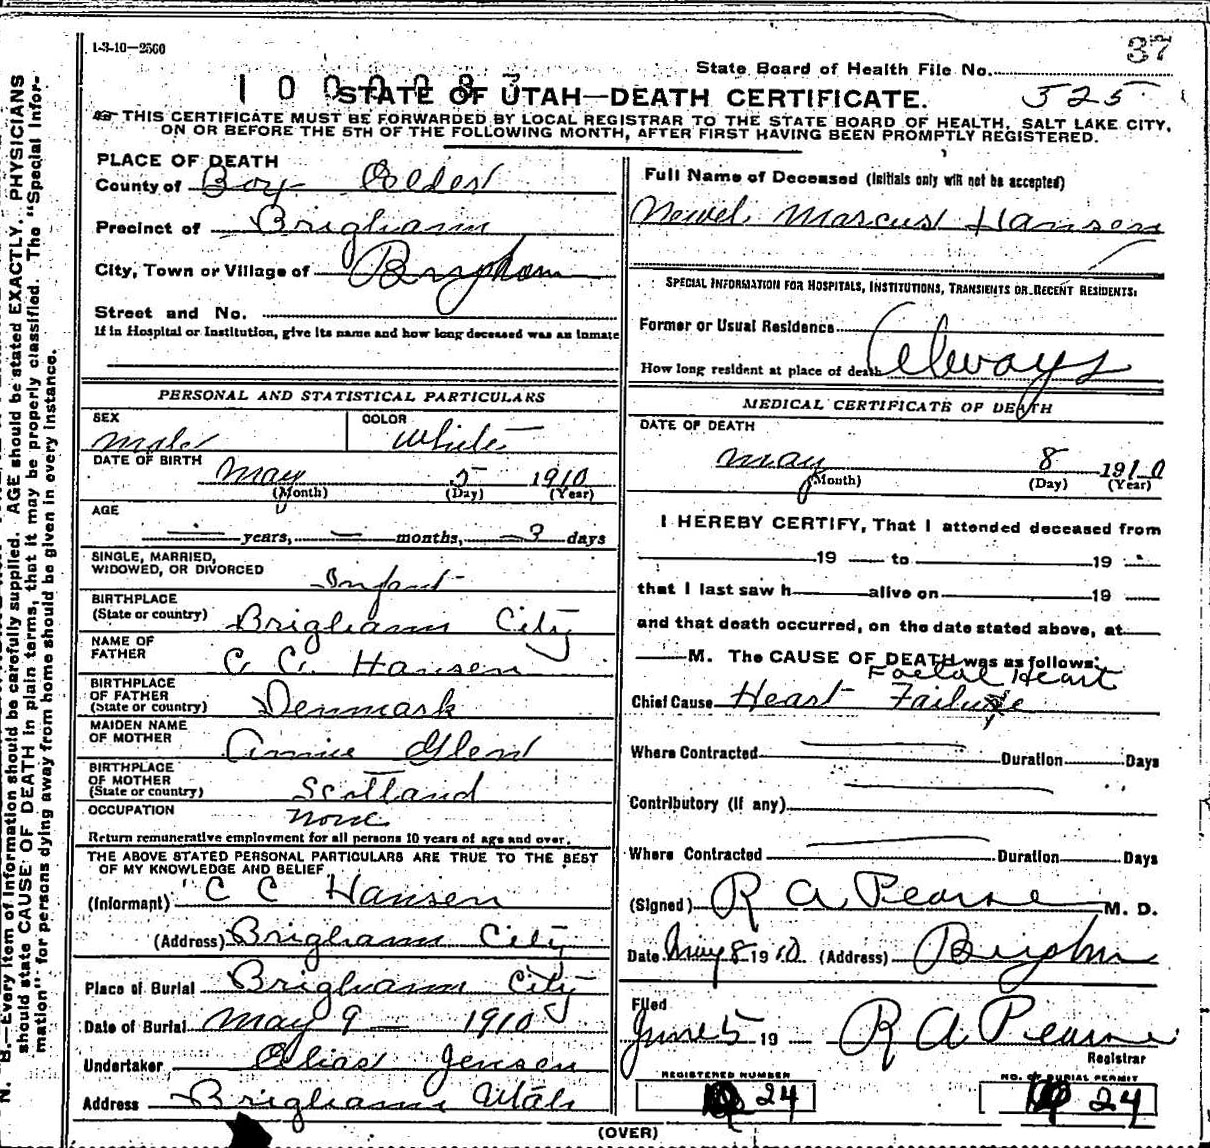 1-3-10—2560
37
State Board of Health File No.
325
1000037
STATE OF UTAH—DEATH CERTIFICATE.
THIS CERTIFICATE MUST BE FORWARDED BY LOCAL REGISTRAR TO THE STATE BOARD OF HEALTH, SALT LAKE CITY,
ON OR BEFORE THE 5TH OF THE FOLLOWING MONTH, AFTER FIRST HAVING BEEN PROMPTLY REGISTERED.
PLACE OF DEATH
County of Box Elder
Precinct of Brigham
City, Town or Village of Brigham
Street and No.
If in Hospital or Institution, give its name and how long deceased was an inmate
PERSONAL AND STATISTICAL PARTICULARS
SEX Male
COLOR White
DATE OF BIRTH May 5 1910
(Month) (Day) (Year)
AGE
— years, — months, 3 days
SINGLE, MARRIED,
WIDOWED, OR DIVORCED Infant
BIRTHPLACE
(State or country) Brigham City
NAME OF
FATHER C. C. Hansen
BIRTHPLACE
OF FATHER
(State or country) Denmark
MAIDEN NAME
OF MOTHER Annie Glen
BIRTHPLACE
OF MOTHER
(State or country) Scotland
OCCUPATION None
Return remunerative employment for all persons 10 years of age and over.
THE ABOVE STATED PERSONAL PARTICULARS ARE TRUE TO THE BEST
OF MY KNOWLEDGE AND BELIEF
(Informant) C C Hansen
(Address) Brigham City
Place of Burial Brigham City
Date of Burial May 9 — 1910
Undertaker Elias Jensen
Address Brigham Utah
Full Name of Deceased (Initials only will not be accepted)
Newel Marcus Hansen
SPECIAL INFORMATION FOR HOSPITALS, INSTITUTIONS, TRANSIENTS OR RECENT RESIDENTS.
Former or Usual Residence
How long resident at place of death Always
MEDICAL CERTIFICATE OF DEATH
DATE OF DEATH
May 8 1910
(Month) (Day) (Year)
I HEREBY CERTIFY, That I attended deceased from
19 to 19
that I last saw h alive on 19
and that death occurred, on the date stated above, at
M. The CAUSE OF DEATH was as follows:
Foetal Heart
Chief Cause Heart Failure
Where Contracted Duration Days
Contributory (if any)
Where Contracted Duration Days
(Signed) R A Pearse M. D.
Date May 8 1910. (Address) Brigham
Filed
June 5 19 R A Pearse
Registrar
REGISTERED NUMBER
24
NO. OF BURIAL PERMIT
24
(OVER)
N. B.—Every item of information should be carefully supplied. AGE should be stated EXACTLY. PHYSICIANS
should state CAUSE OF DEATH in plain terms, that it may be properly classified. The "Special Infor-
mation" for persons dying away from home should be given in every instance.